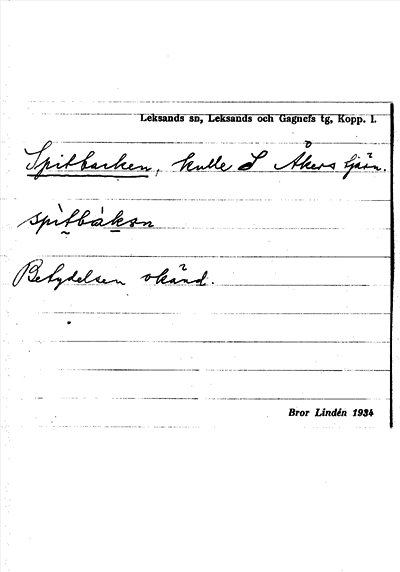 Leksands sn, Leksands och Gagnefs tg, Kopp. l.
Spitbacken, kulle S Åkers tjärn.
spìtbàkɘn
Betydelsen okänd.
Bror Lindén 1934